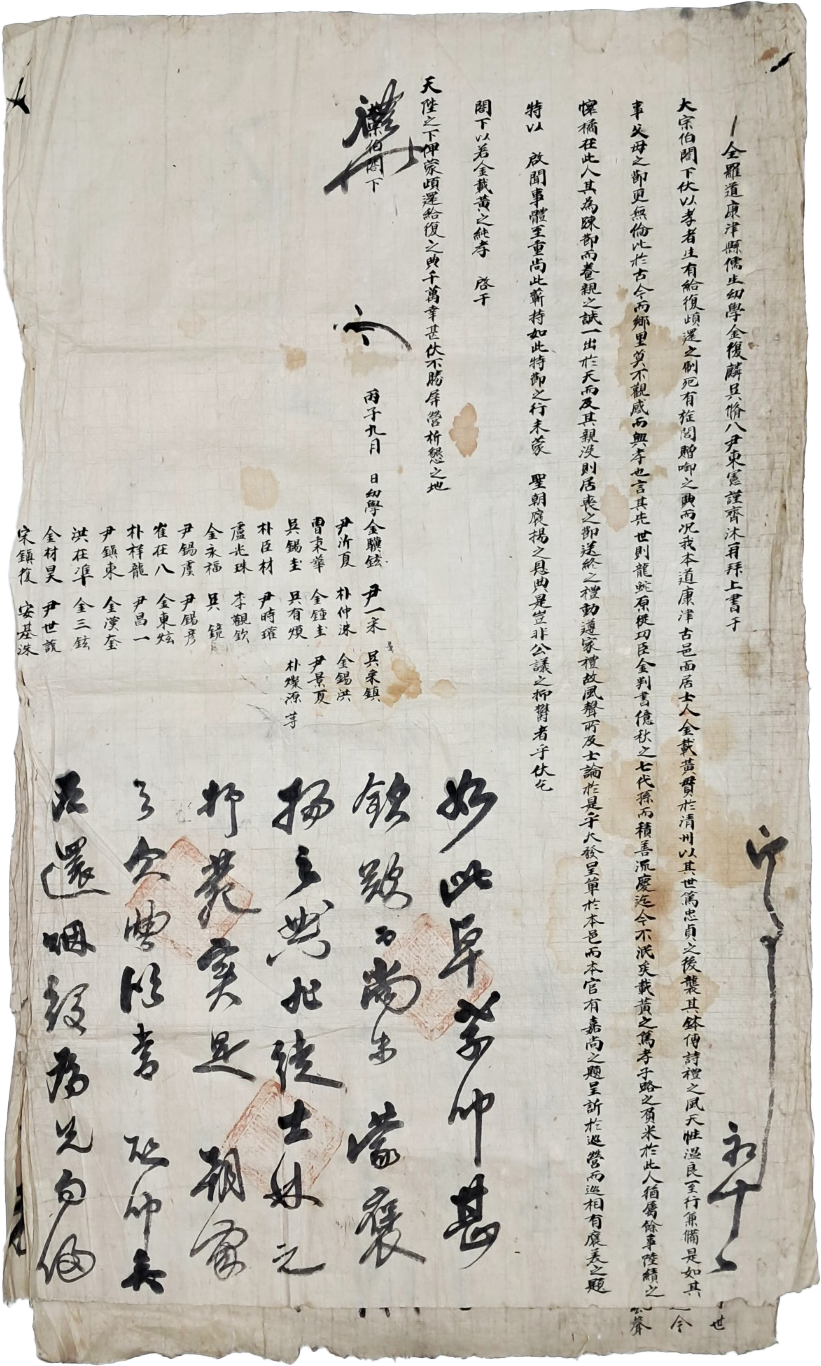 全羅道康津縣儒生幼學金復麟吳膾八尹東憲謹齊沐再拜上書于
大宗伯閤下伏以孝者生有給復頉還之例死有旌閭贈啣之典而況我本道康津古邑面居士人金載黃貫於淸州以其世篤忠貞之後襲其鉢傳詩禮之風天性溫良至行兼備是如其
事父母之節更無倫比於古今而鄕里莫不觀感而興孝也言其先世則龍蛇原從功臣金判書億秋之七代孫而積善流慶迄今不泯矣載黃之篤孝子路之負米於此人猶屬餘事陸績之
懷橘在此人其爲踈節而養親之誠一出於天而及其親沒則居喪之節送終之禮動遵家禮故風聲所及士論於是乎大發呈單於本邑而本官有嘉尙之題呈訴於巡營而巡相有褒美之題
特以 啟聞事體至重尙此蘄持如此特節之行未蒙 聖朝褒揚之恩典是豈非公議之抑鬱者乎伏乞
閤下以若金載黃之純孝 啓于
天陛之下俾蒙頉還給復之典千萬幸甚伏不勝屛營祈懇之地
禮
宗伯閤下
丙子九月 日幼學金驥鉉 尹一采 吳采鎭
尹沂夏 朴仲洙 金錫洪
曺秉華 金鍾圭 尹景夏
吳錫圭 吳有煥 朴燦源 等
朴臣材 尹時瓘
盧光珠 李觀欽
金永福 吳鏡
尹錫虞 尹錫彥
崔在八 金東炫
朴祥龍 尹昌一
尹鎭東 金漢奎
洪在準 金三鉉
金材昊 尹世諴
宋鎭復 安基洙
如此卓業叩甚
欽歎而尙未 蒙褒
揚之典非徒士林之
抑菀實是 朝家
之欠典
還烟役爲先勿侵